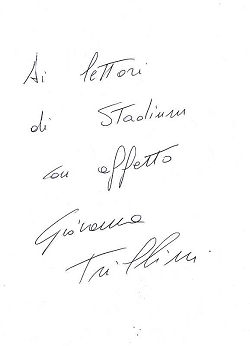 Ai lettori
di Stadium
con affetto
Giovanna
Trillini